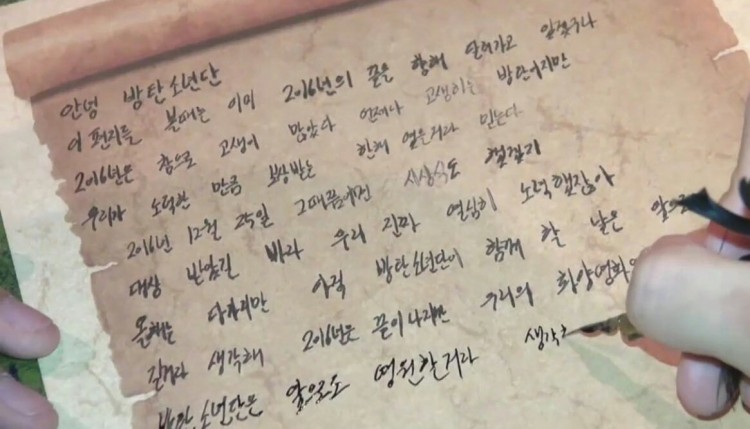 안녕 방탄소년단
이 편지를 볼때는 이미 2016년의 끝을 향해 달려가고 있겠구나
2016년은 참으로 고생이 많았다 언제나 고생하는 방탄이지만
우리가 노력한 만큼 보상받는 한해 였을거라 믿는다
2016년 12월 25일 그때쯤이면 시상식도 했겠지
대상 받았길 바라 우리 진짜 열심히 노력했잖아
올해는 다가지만 아직 방탄소년단이 함께 할 날은 앞으로
길거라 생각해 2016년은 끝이나지만 우리의 화양연화
방탄소년단은 앞으로도 영원할거라 생각